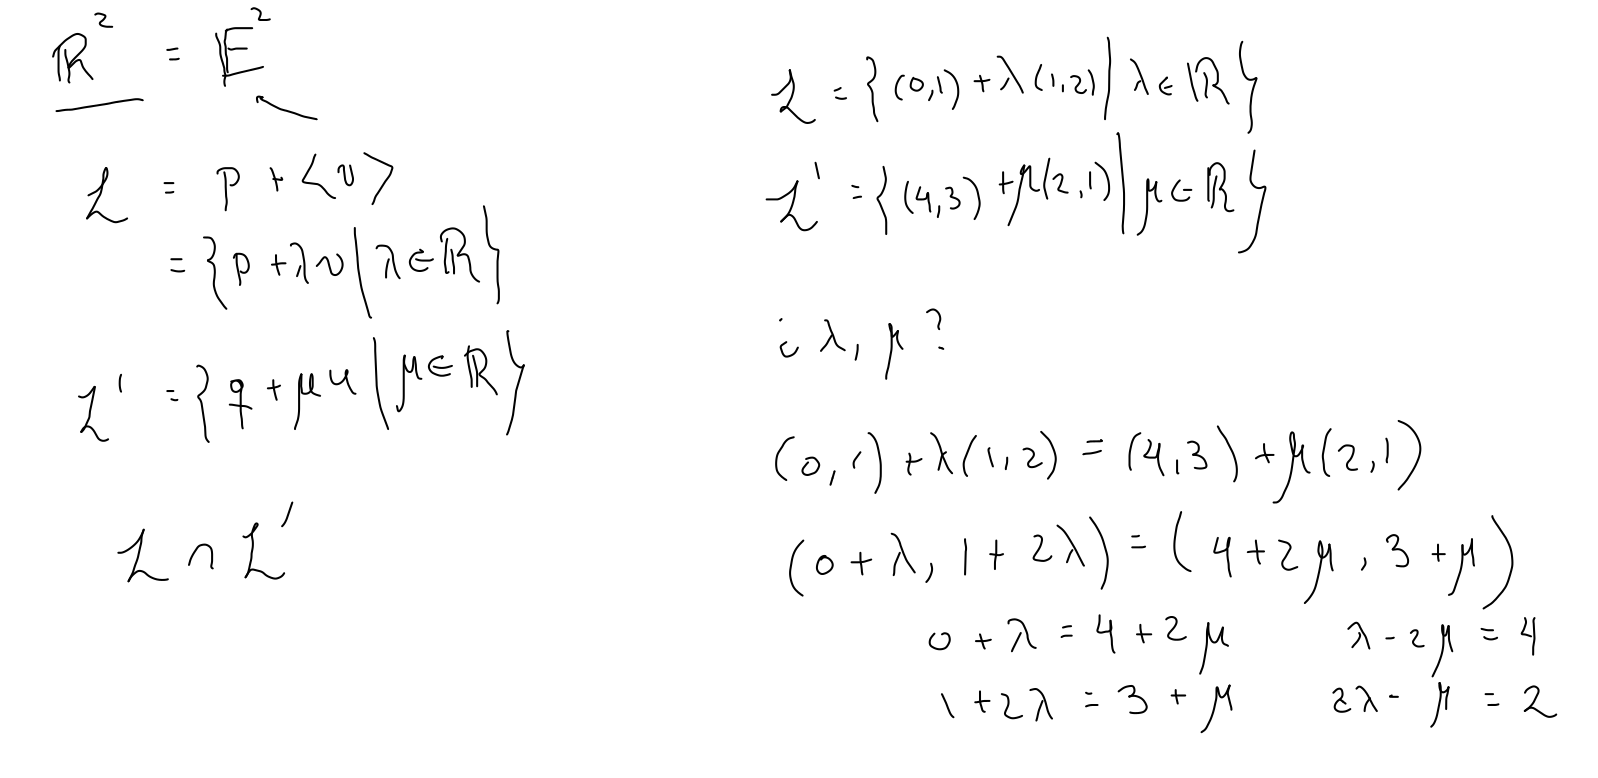 ℝ² = 𝔼²
ℒ = p + <v>
= {p + λv | λ ∈ ℝ}
ℒ' = {q + μu | μ ∈ ℝ}
ℒ ∩ ℒ'
ℒ = {(0,1) + λ(1,2) | λ ∈ ℝ}
ℒ' = {(4,3) + μ(2,1) | μ ∈ ℝ}
¿ λ, μ ?
(0,1) + λ(1,2) = (4,3) + μ(2,1)
(0 + λ, 1 + 2λ) = (4 + 2μ, 3 + μ)
0 + λ = 4 + 2μ λ - 2μ = 4
1 + 2λ = 3 + μ 2λ - μ = 2